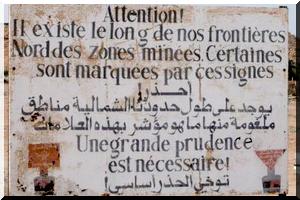 Attention!
Il existe le long de nos frontières
Nord des zones minées. Certaines
sont marquées par ces signes
احذر!
يوجد على طول حدودنا الشمالية مناطق
ملغومة منها ما هو مؤشر بهذه العلامات
Une grande prudence
est nécessaire!
توخي الحذر أساسي!